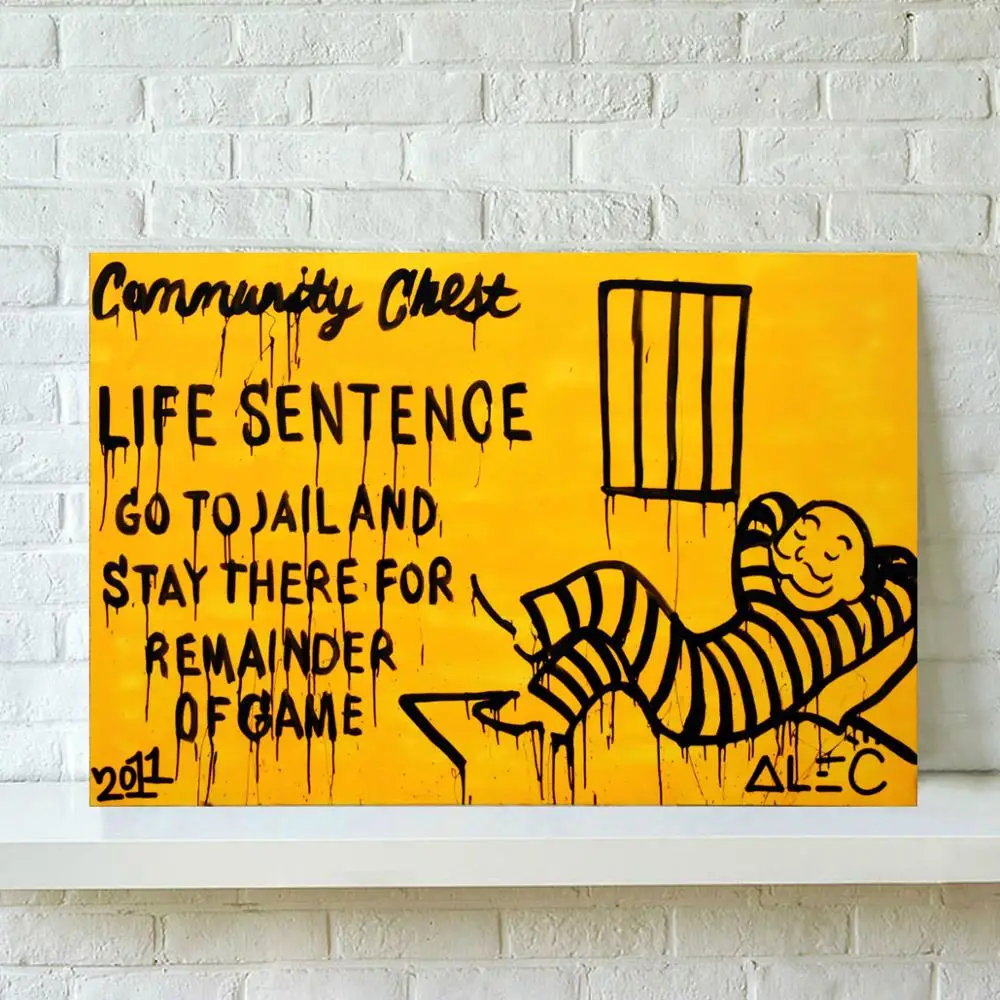 Community Chest
LIFE SENTENCE
GO TO JAIL AND
STAY THERE FOR
REMAINDER
OF GAME
2011
ALEC